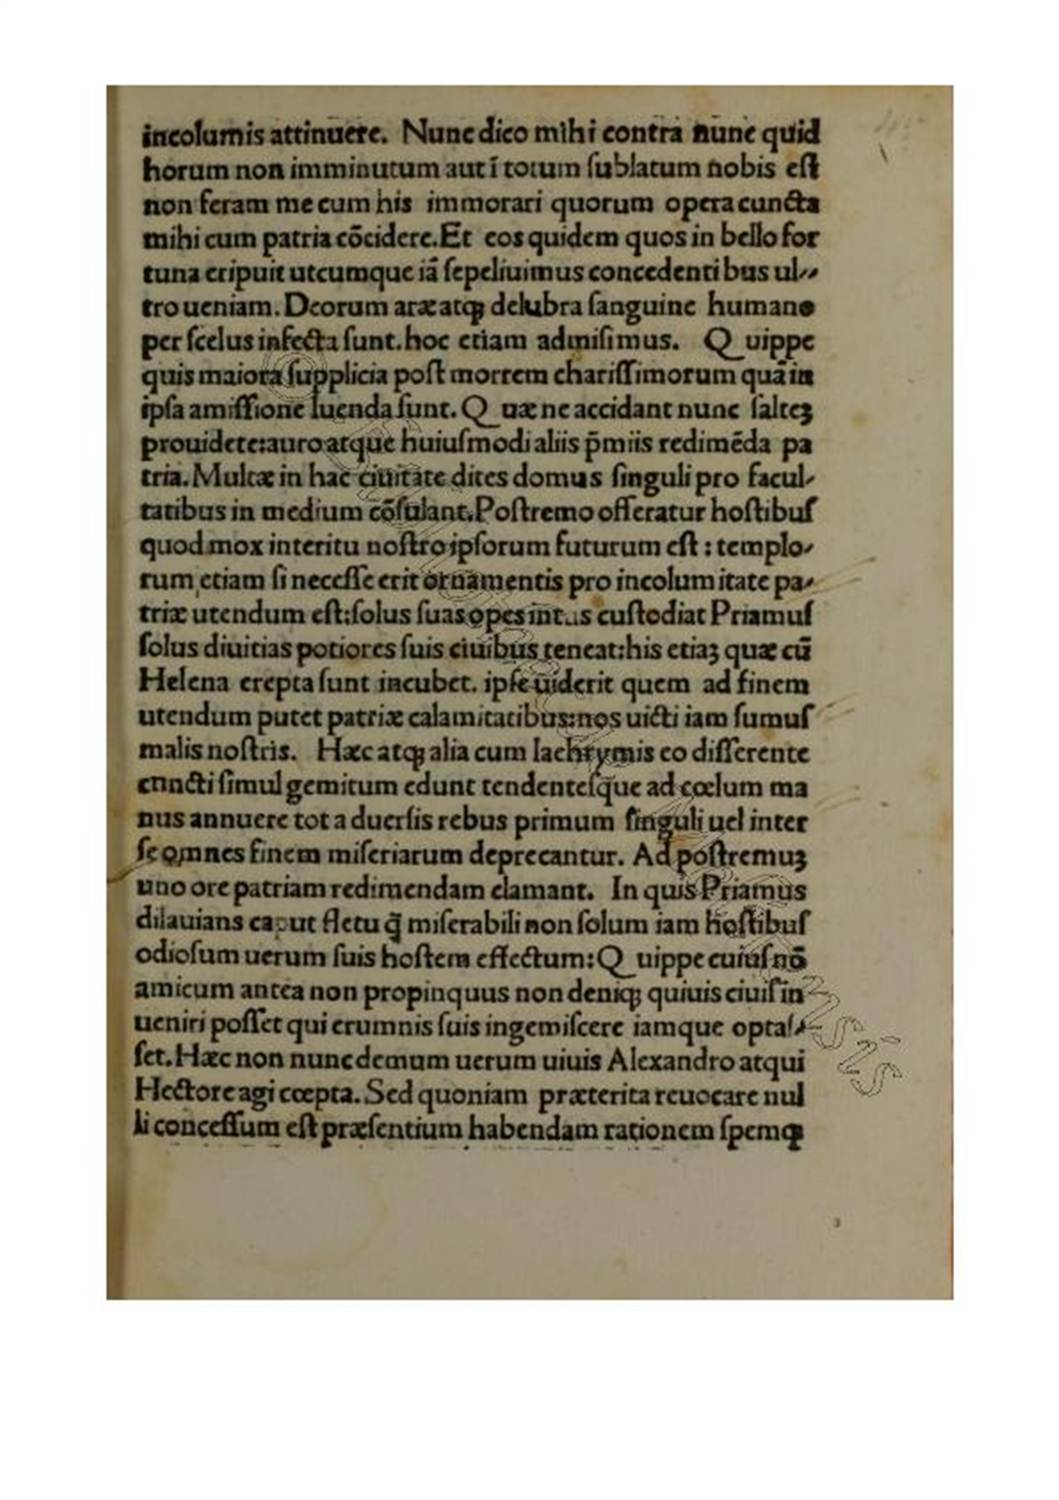 incolumis attinuere. Nunc dico mihi contra nunc quid
horum non imminutum aut ī totum ſublatum nobis eſt
non feram me cum his immorari quorum opera cuncta
mihi cum patria cōcidere. Et eos quidem quos in bello for
tuna eripuit utcumque iā ſepeliuimus concedentibus ul⸗
tro ueniam. Deorum aræ atqꝫ delubra ſanguine humano
per ſcelus infecta ſunt. hoc etiam admiſimus. Q uippe
quis maiora ſupplicia poſt morrem chariſſimorum quā in
ipſa amiſſione luenda ſunt. Q uæ ne accidant nunc ſalteꝫ
prouidete: auro atque huiuſmodi aliis p̄miis redimēda pa
tria. Multæ in hac ciuitate dites domus ſinguli pro facul⸗
tatibus in medium cōſulant. Poſtremo offeratur hoſtibuſ
quod mox interitu noſtro ipſorum futurum eſt : templo⸗
rum etiam ſi neceſſe erit ornamentis pro incolumitate pa⸗
triæ utendum eſt: ſolus ſuas opes intus cuſtodiat Priamuſ
ſolus diuitias potiores ſuis ciuibus teneat: his etiaꝫ quæ cū
Helena erepta ſunt incubet. ipſe uiderit quem ad finem
utendum putet patriæ calamitatibus: nos uicti iam ſumuſ
malis noſtris. Hæc atqꝫ alia cum lachrymis eo diſſerente
cuncti ſimul gemitum edunt tendenteſque ad cœlum ma
nus annuere tot aduerſis rebus primum ſinguli uel inter
ſe omnes finem miſeriarum deprecantur. Ad poſtremuꝫ
uno ore patriam redimendam clamant. In quis Priamus
dilauians caput fletu q̄ miſerabili non ſolum iam hoſtibuſ
odioſum uerum ſuis hoſtem effectum: Q uippe cuiuſ nō
amicum antea non propinquus non deniqꝫ quiuis ciuiſ in
ueniri poſſet qui erumnis ſuis ingemiſcere iamque optaſ⸗
ſet. Hæc non nunc demum uerum uiuis Alexandro atqui
Hectore agi cœpta. Sed quoniam præterita reuocare nul
li conceſſum eſt præſentium habendam rationem ſpemqꝫ